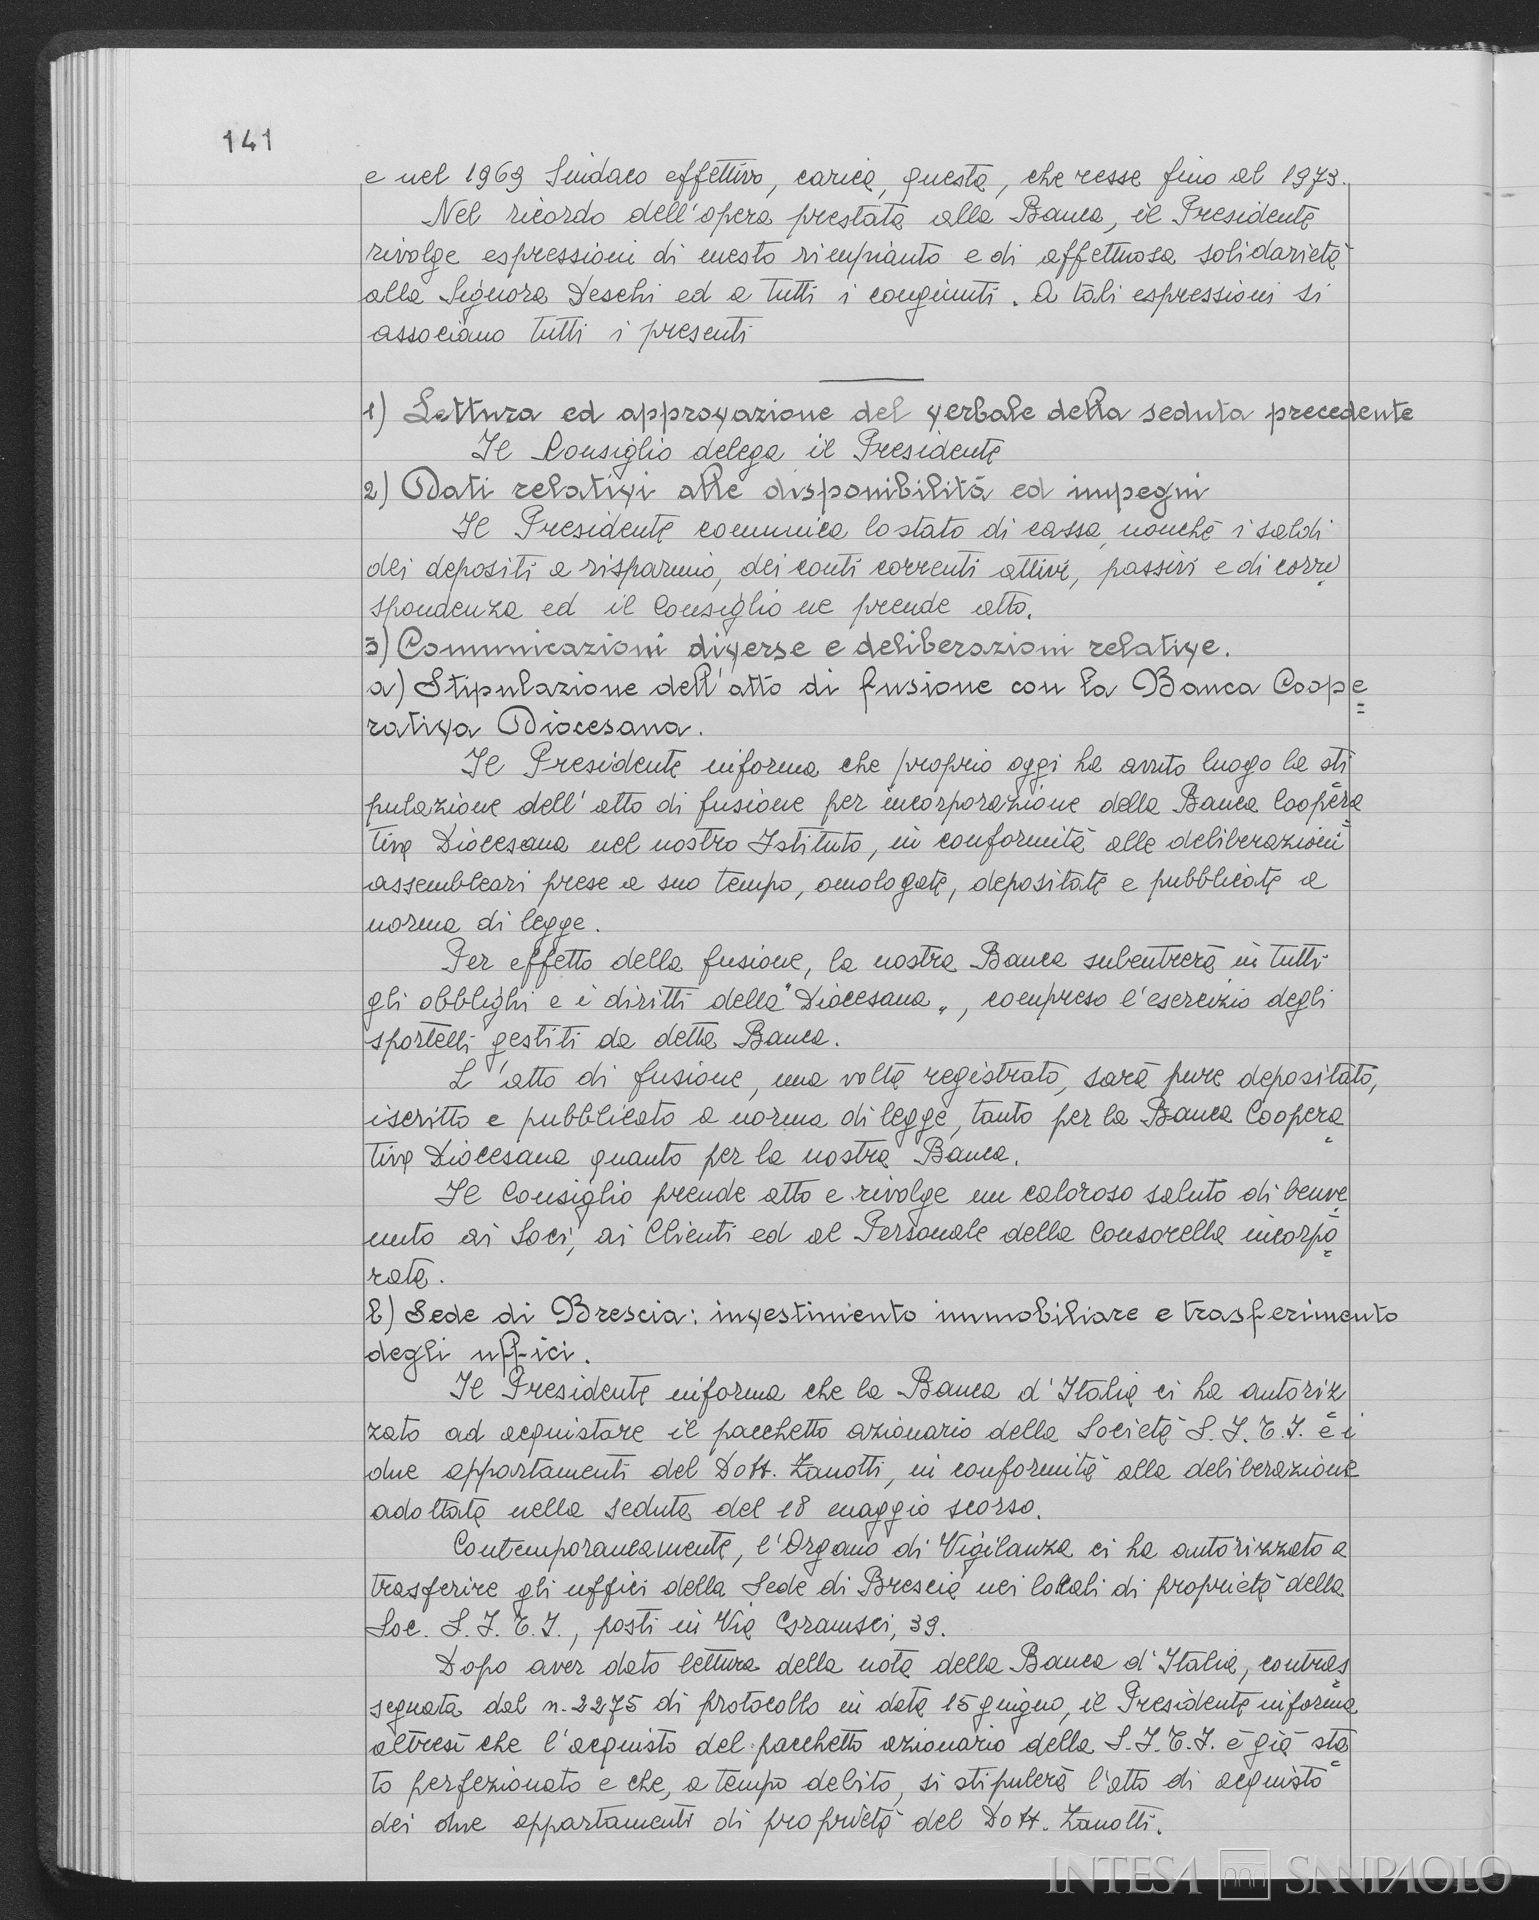 141
e nel 1969 Sindaco effettivo, carica, questa, che resse fino al 1973.
Nel ricordo dell'opera prestata alla Banca, il Presidente
rivolge espressioni di mesto rimpianto e di affettuosa solidarietà
alla Signora Deschi ed a tutti i congiunti. A tali espressioni si
associano tutti i presenti
1) Lettura ed approvazione del verbale della seduta precedente
Il Consiglio delega il Presidente
2) Dati relativi alle disponibilità ed impegni
Il Presidente comunica lo stato di cassa, nonchè i saldi
dei depositi a risparmio, dei conti correnti attivi, passivi e di corri
spondenza ed il Consiglio ne prende atto.
3) Comunicazioni diverse e deliberazioni relative.
a) Stipulazione dell'atto di fusione con la Banca Coope=
rativa Diocesana.
Il Presidente informa che proprio oggi ha avuto luogo la sti
pulazione dell'atto di fusione per incorporazione della Banca Coopera
tiva Diocesana nel nostro Istituto, in conformità alle deliberazioni
assembleari prese a suo tempo, omologate, depositate e pubblicate a
norma di legge.
Per effetto della fusione, la nostra Banca subentrerà in tutti
gli obblighi e i diritti della "Diocesana", compreso l'esercizio degli
sportelli gestiti da detta Banca.
L'atto di fusione, una volta registrato, sarà pure depositato,
iscritto e pubblicato a norma di legge, tanto per la Banca Coopera=
tiva Diocesana quanto per la nostra Banca.
Il Consiglio prende atto e rivolge un caloroso saluto di benve
nuto ai Soci, ai Clienti ed al Personale della Consorella incorpo=
rata.
b) Sede di Brescia: investimento immobiliare e trasferimento
degli uffici.
Il Presidente informa che la Banca d'Italia ci ha autoriz=
zato ad acquistare il pacchetto azionario della Società S.I.E.I. e i
due appartamenti del Dott. Zanotti, in conformità alla deliberazione
adottata nella seduta del 18 maggio scorso.
Contemporaneamente, l'Organo di Vigilanza ci ha autorizzato a
trasferire gli uffici della Sede di Brescia nei locali di proprietà della
Soc. S.I.E.I., posti in Via Gramsci, 39.
Dopo aver dato lettura della nota della Banca d'Italia, contras=
segnata dal n. 2275 di protocollo in data 15 giugno, il Presidente informa
altresì che l'acquisto del pacchetto azionario della S.I.E.I. è già sta=
to perfezionato e che, a tempo debito, si stipulerà l'atto di acquisto
dei due appartamenti di proprietà del Dott. Zanotti.
INTESA SANPAOLO